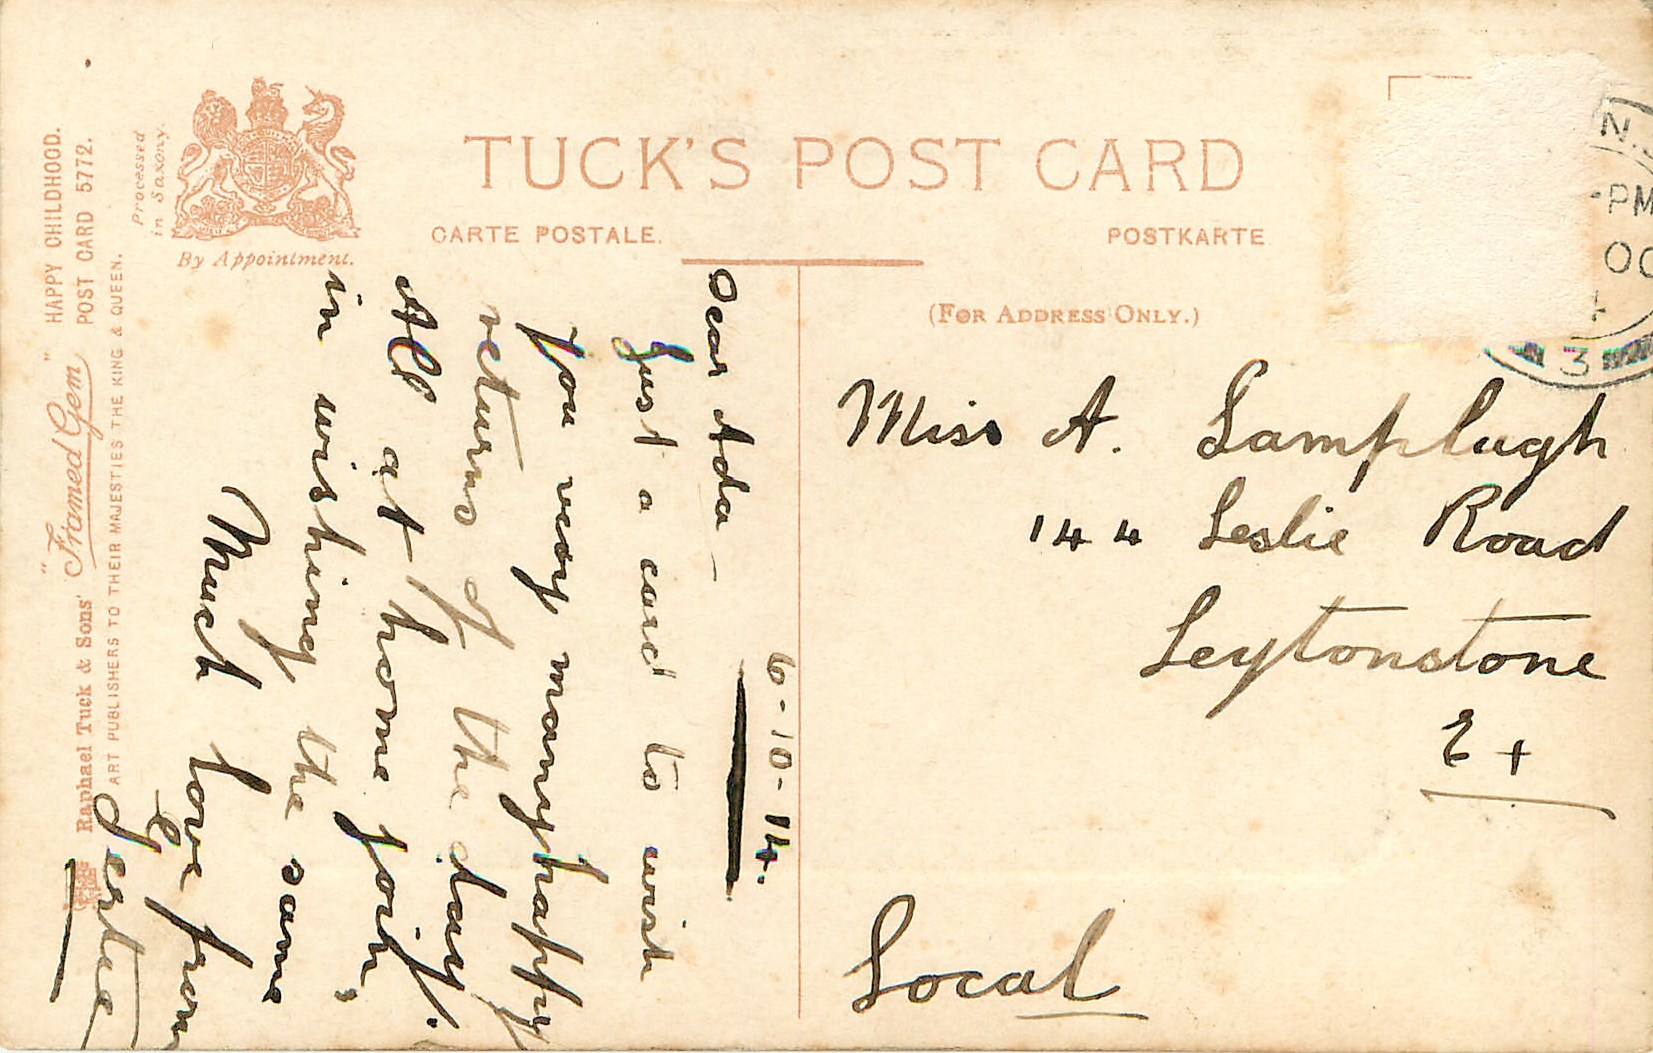 TUCK'S POST CARD
CARTE POSTALE.
POSTKARTE
(FOR ADDRESS ONLY.)
By Appointment.
Processed
in Saxony.
"HAPPY CHILDHOOD.
Raphael Tuck & Sons' "Framed Gem" POST CARD 5772.
ART PUBLISHERS TO THEIR MAJESTIES THE KING & QUEEN.
N.
-PM
OC
3
6-10-14.
Dear Ada –
Just a card to wish
you very many happy
returns of the day.
All at home join
in wishing the same
Much love from
Gertie
Miss A. Lamplugh
144 Leslie Road
Leytonstone
E +
Local